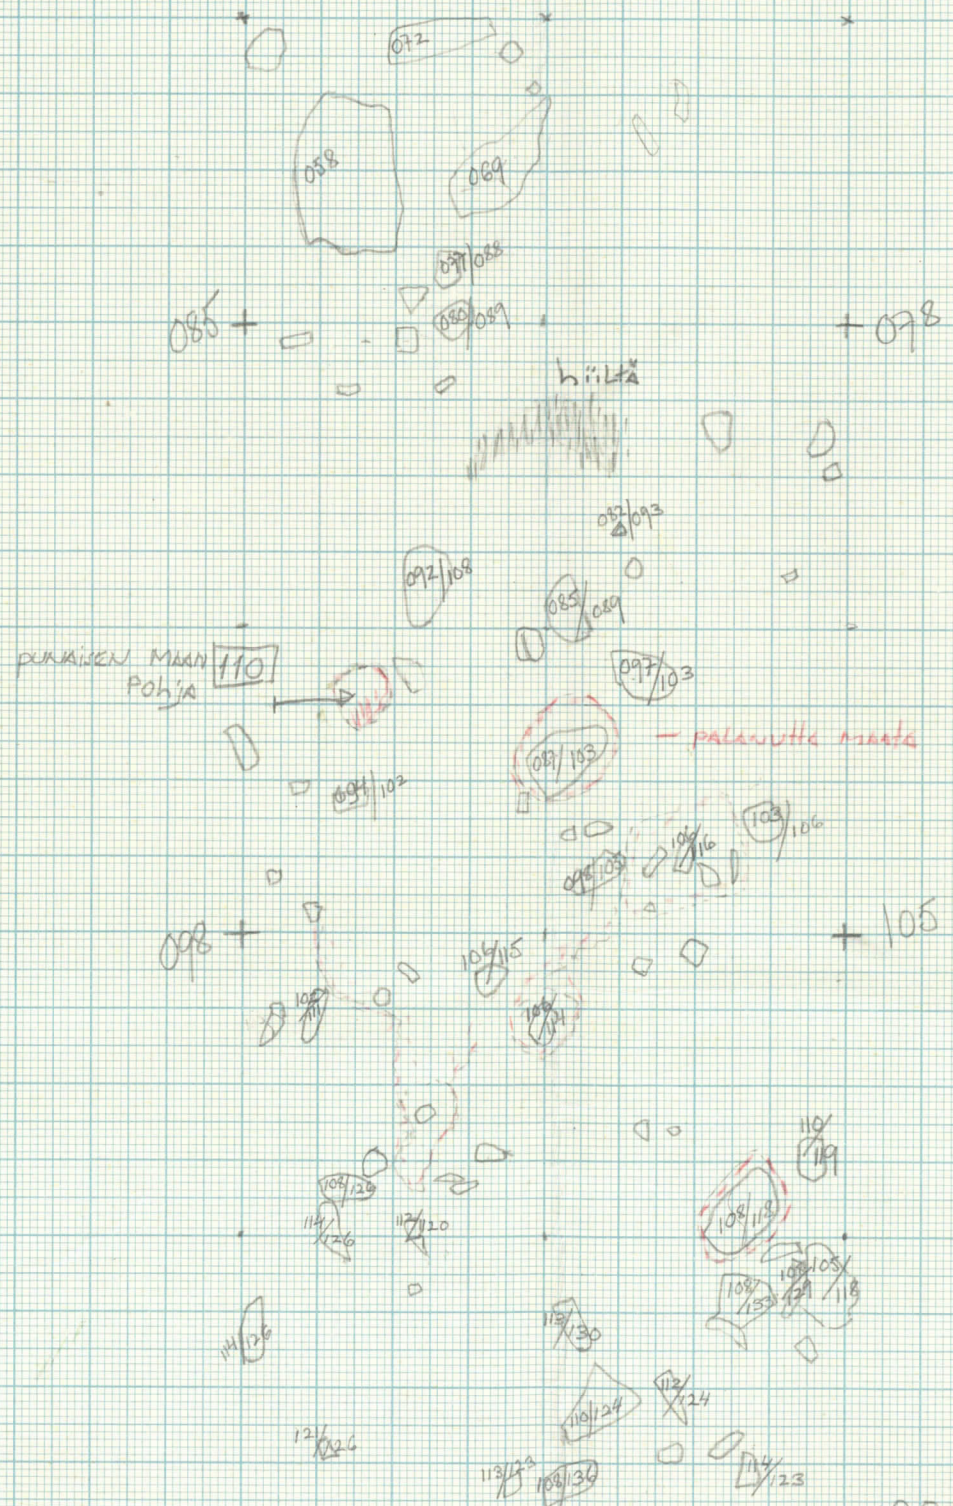 072
058
069
077/088
085
080/089
078
hiiltä
082/093
092/108
085/089
PUNAISEN MAAN 110
POHJA
097/103
— PALANUTTA MAATA
087/103
094/102
103/106
106/116
098/103
098
105
106/115
106/114
110/119
108/126
108/118
114/126
112/120
105/118
108/133
114/126
113/130
112/124
110/124
121/126
113/123
108/136
114/123